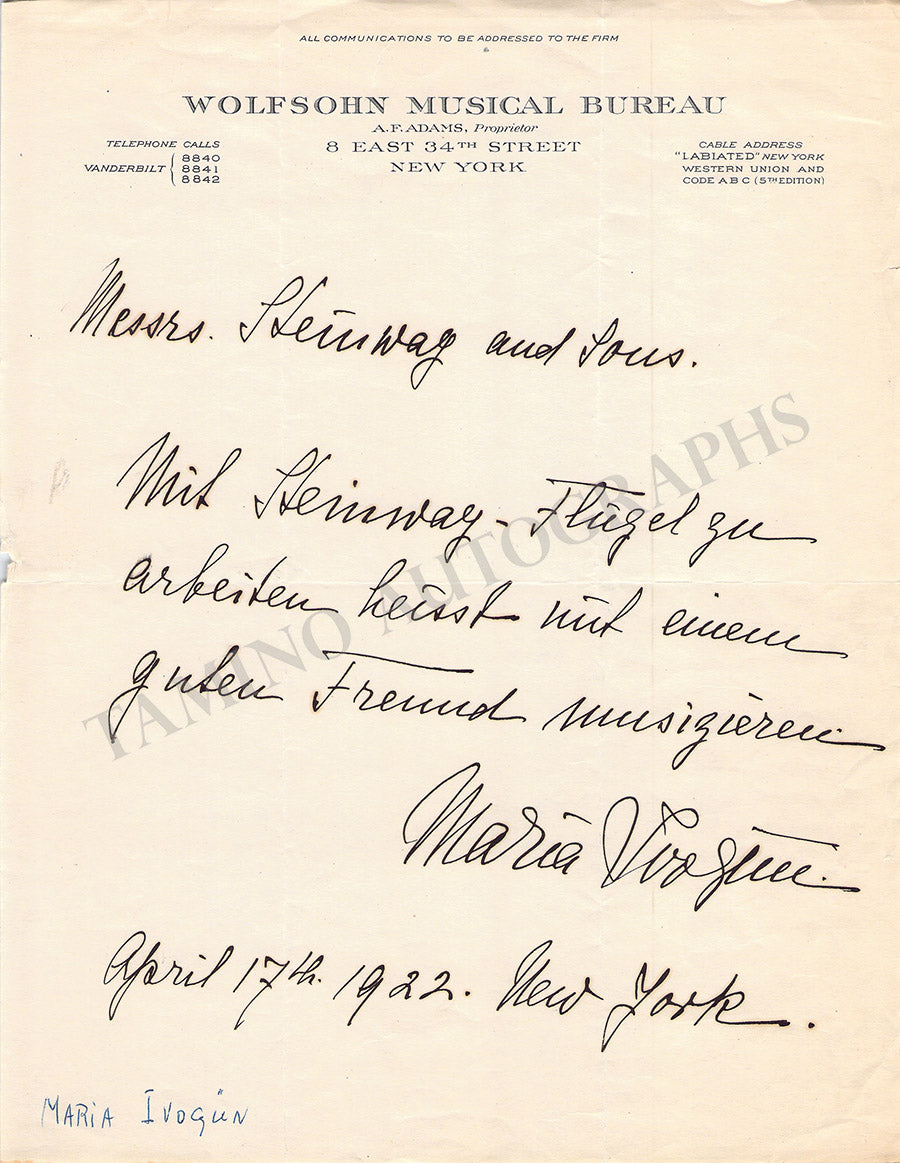 ALL COMMUNICATIONS TO BE ADDRESSED TO THE FIRM
WOLFSOHN MUSICAL BUREAU
A. F. ADAMS, Proprietor
8 EAST 34TH STREET
NEW YORK
TELEPHONE CALLS
VANDERBILT { 8840
8841
8842
CABLE ADDRESS
"LABIATED" NEW YORK
WESTERN UNION AND
CODE A B C (5TH EDITION)
Messrs. Steinway and Sons.
Mit Steinway-Flügel zu
arbeiten heisst mit einem
guten Freund musizieren
Maria Ivogün.
April 17th. 1922. New York.
MARIA IVOGÜN
TAMINO AUTOGRAPHS